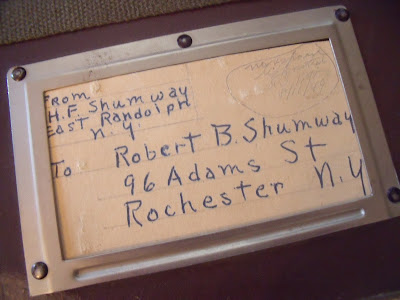 From
H.F. Shumway
East Randolph
N.Y.
To Robert B. Shumway
96 Adams St
Rochester N.Y